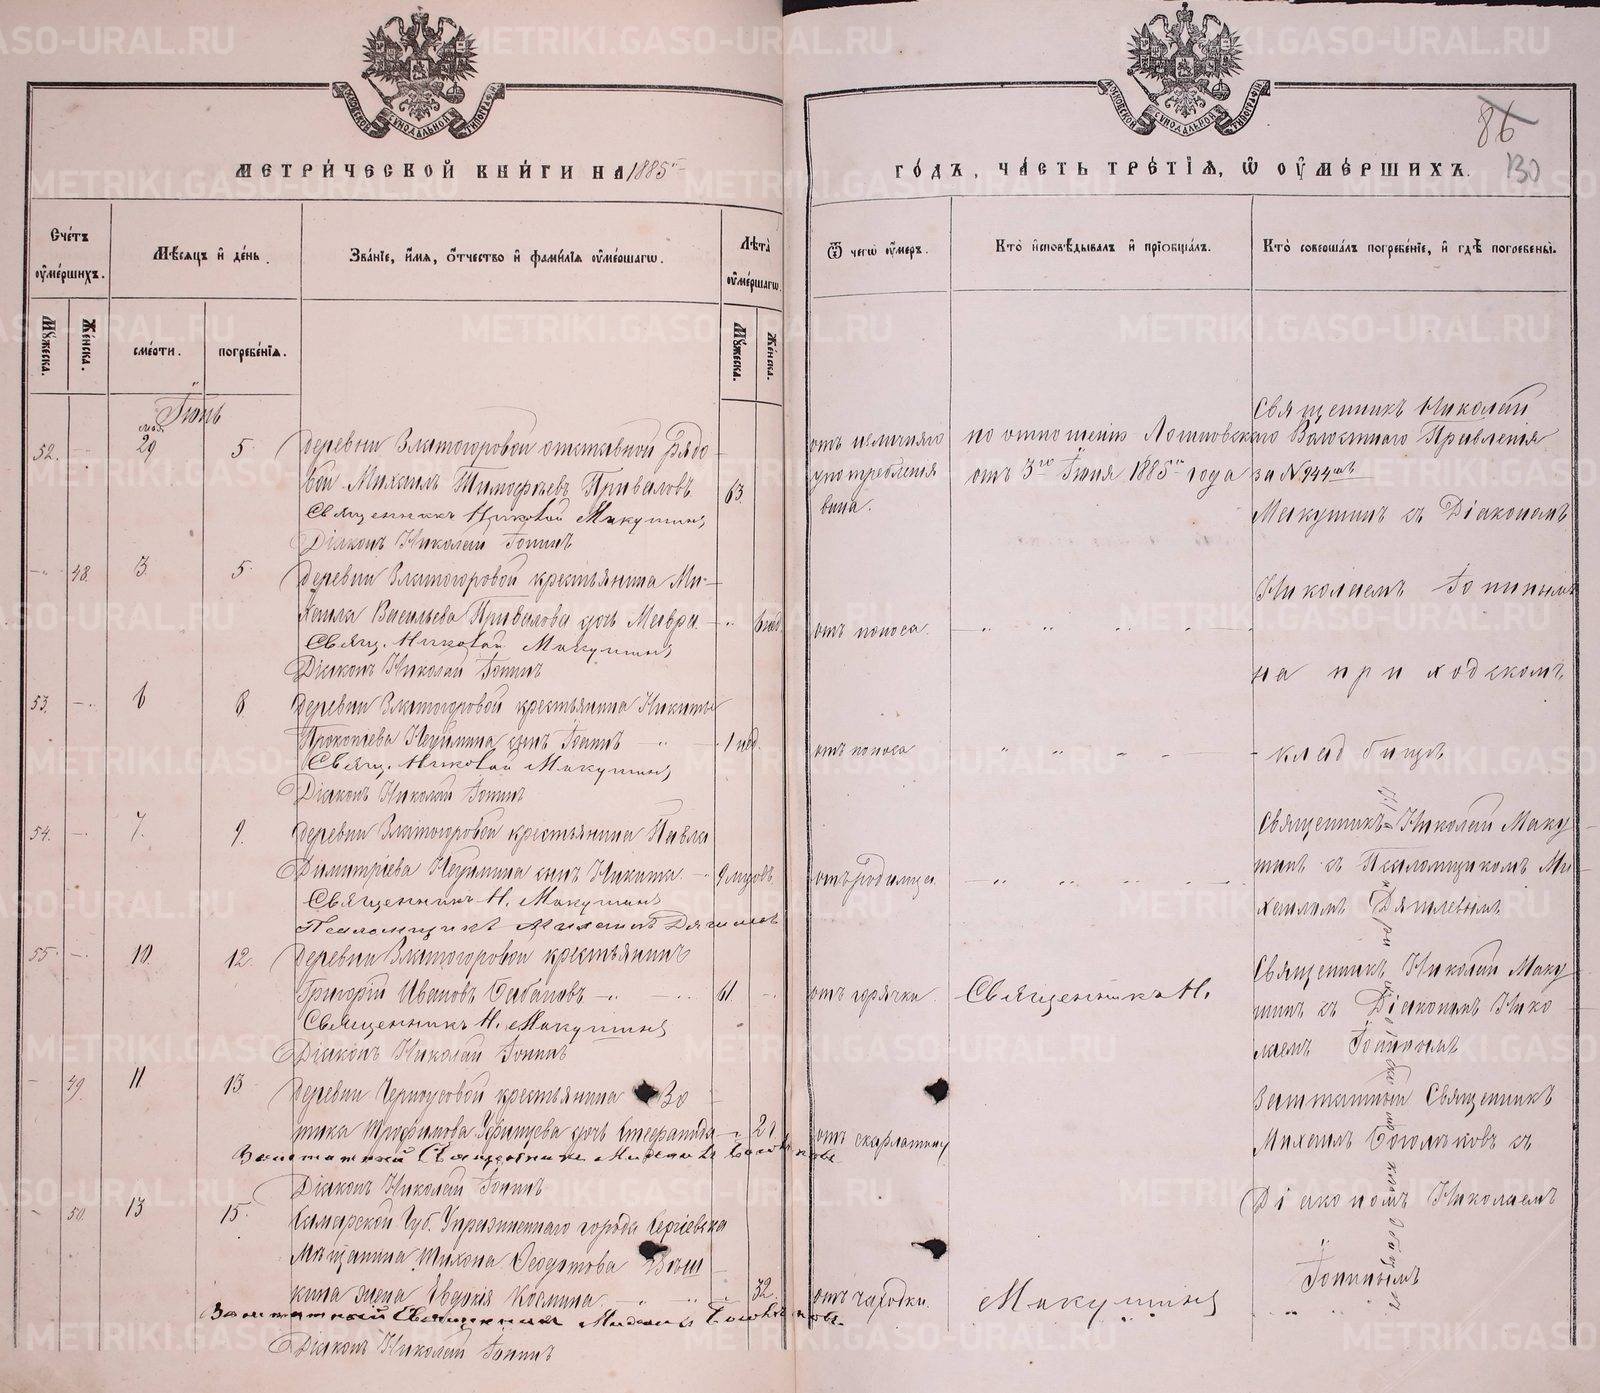 МЕТРИ́ЧЕСКОЙ КНИ́ГИ НА 1885 г.
Сче́тъ оу҆ме́ршихъ.
Мѣ́сяцъ и҆ де́нь.
Зва́нїе, и҆́мя, ѻ҆́тчество и҆ фами́лїя оу҆ме́ршагѡ.
Лѣ́та оу҆ме́ршагѡ.
Мꙋ́жеска.
Же́нска.
сме́рти.
погребе́нїя.
Мꙋ́жеска.
Же́нска.
Іюнь
52.
29
5.
деревни Златогоровой отставной Рядо
вой Михаилъ Тимофѣевъ Приваловъ
63
Священникъ Николай Макушинъ
Діаконъ Николай Топинъ
48.
3.
5.
деревни Златогоровой крестьянина Ми-
хаила Васильева Привалова дочь Мавра
6 нед.
Свящ. Николай Макушинъ
Діаконъ Николай Топинъ
53.
6
8.
деревни Златогоровой крестьянина Никиты
Прокопіева Неуймина сынъ Іоаннъ
1 нед.
Свящ. Николай Макушинъ
Діаконъ Николай Топинъ
54.
7.
9.
деревни Златогоровой крестьянина Павла
Димитріева Неуймина сынъ Никита
9 мцовъ
Священникъ Н. Макушинъ
Псаломщикъ Михаилъ Дягилевъ
55.
10.
12.
деревни Златогоровой крестьянинъ
Григорій Ивановъ Бабановъ
61.
Священникъ Н. Макушинъ
Діаконъ Николай Топинъ
49.
11
13
деревни Черноусовой крестьянина Зо
тика Трофимова дочь
2 г.
Заштатный Священникъ Михаилъ Богомоловъ
Діаконъ Николай Топинъ
50.
13
15.
Самарской Губ. города Сергіевска
Мѣщанина Тихона Ѳеодотова
кина жена Евдокія Космина
32.
Заштатный Священникъ Михаилъ
Діаконъ Николай Топинъ
ГО́ДЪ, ЧА́СТЬ ТРЕ́ТІЯ, Ѡ҆ ОУ҆МЕ́РШИХЪ.
86
130
Ѿ чегѡ̀ оу҆́меръ.
Кто̀ и҆сповѣ́дывалъ и҆ прїѻбща́лъ.
Кто̀ соверша́лъ погребе́нїе, и҆ гдѣ̀ погребены̀.
отъ излишняго
употребленія
вина.
по отношенію Логиновскаго Волостного Правленія
отъ 3го Іюня 1885 года за № 944мъ
Священникъ Николай
Макушинъ съ Діакономъ
Николаемъ Топинымъ
на приходскомъ
кладбищѣ
отъ поноса.
отъ поноса
отъ родимца.
Священникъ Николай Маку
шинъ съ Псаломщикомъ Ми-
хаиломъ Дягилевымъ
отъ горячки.
Священникъ Н.
Священникъ Николай Маку
шинъ съ Діакономъ Нико
лаемъ Топинымъ
отъ скарлатины
Заштатный Священникъ
Михаилъ Богомоловъ съ
Діакономъ Николаемъ
Топинымъ
отъ чахотки.
Макушинъ
METRIKI.GASO-URAL.RU